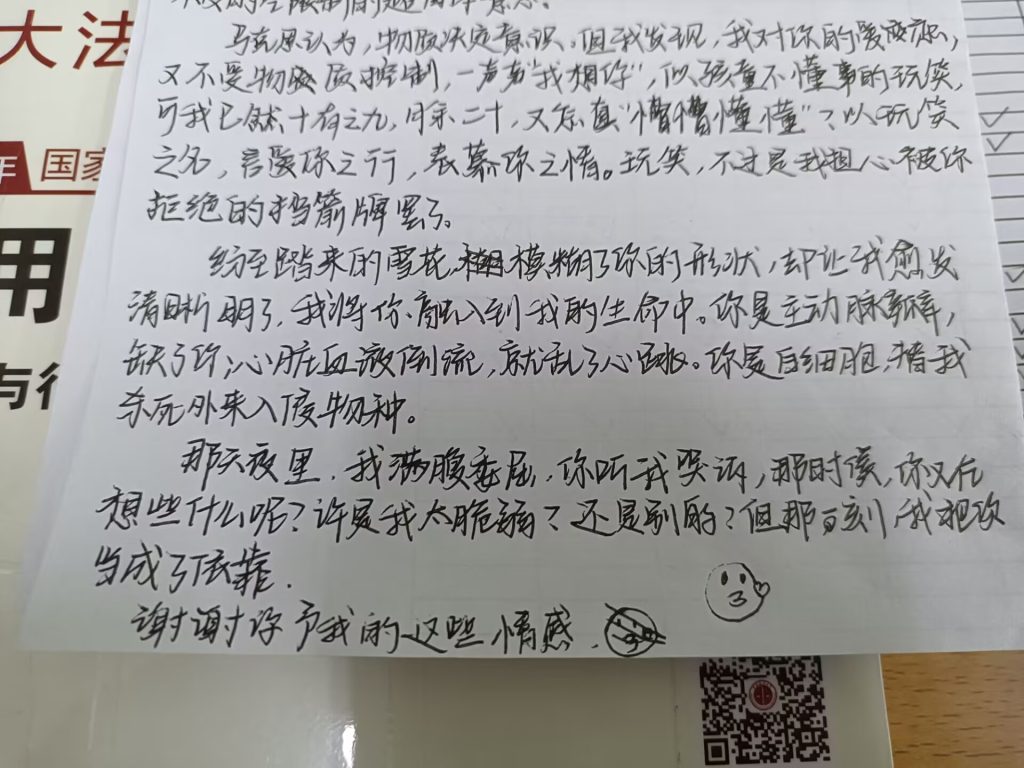 马克思认为，物质决定意识，但我发现，我对你的爱
又不受物质控制，一声声“我想你”，似孩童不懂事的玩笑，
可我已然十有之九，月余二十，又怎真“懵懵懂懂”？以玩笑
之名，言爱你之行，表慕你之情。玩笑，不过是我担心被你
拒绝的挡箭牌罢了。
纷至踏来的雪花模糊了你的形状，却让我愈发
清晰明了，我将你融入到我的生命中。你是主动脉瓣，
缺了你，心脏血液倒流，就乱了心跳。你是白细胞，替我
杀死外来入侵物种。
那天夜里，我满腹委屈，你听我哭诉，那时候，你又在
想些什么呢？许是我太脆弱？还是别的？但那一刻，我把你
当成了依靠.
谢谢你予我的这些情感.
大法
年 国家
用
与行